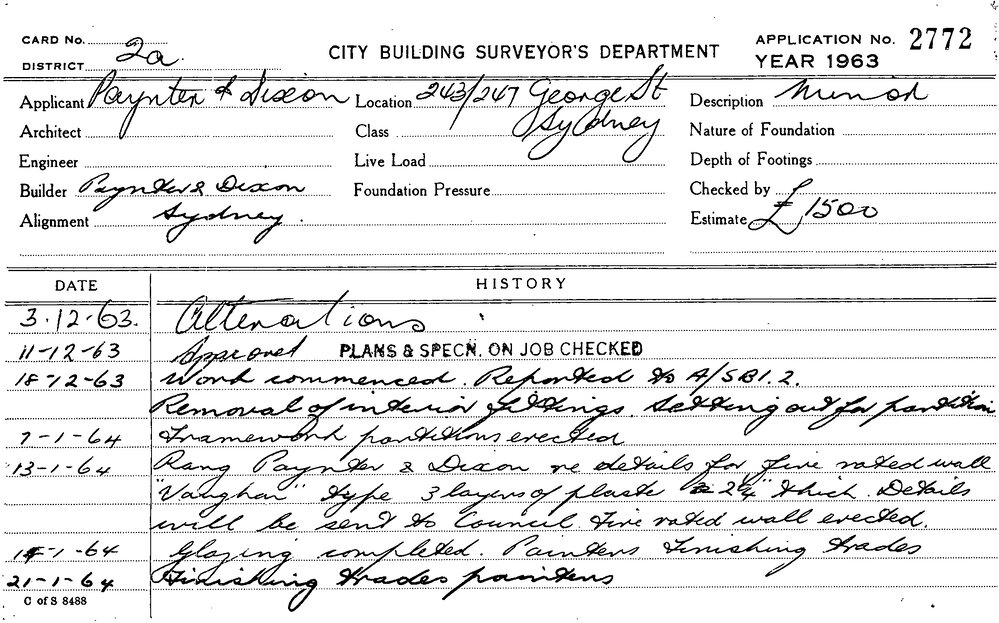 CARD No. 2a.
DISTRICT
CITY BUILDING SURVEYOR'S DEPARTMENT
APPLICATION No. 2772
YEAR 1963
Applicant Paynter & Dixon
Location 243/247 George St
Sydney
Description Minor
Architect
Class
Nature of Foundation
Engineer
Live Load
Depth of Footings
Builder Paynter & Dixon
Foundation Pressure
Checked by
Alignment Sydney.
Estimate £1500
DATE HISTORY
3.12.63. Alterations
11-12-63 Approval PLANS & SPECN. ON JOB CHECKED
18-12-63 Work commenced. Reported to A/SBI.2.
Removal of interior fittings. Setting out for partition
7-1-64 Framework partitions erected
13-1-64 Rang Paynter & Dixon re details for fire rated wall
"Vaughan" type 3 layers of plaste 2¼" thick. Details
will be sent to Council. Fire rated wall erected.
-1-64 Glazing completed. Painters Finishing trades
21-1-64 Finishing trades painters
C of S 8488